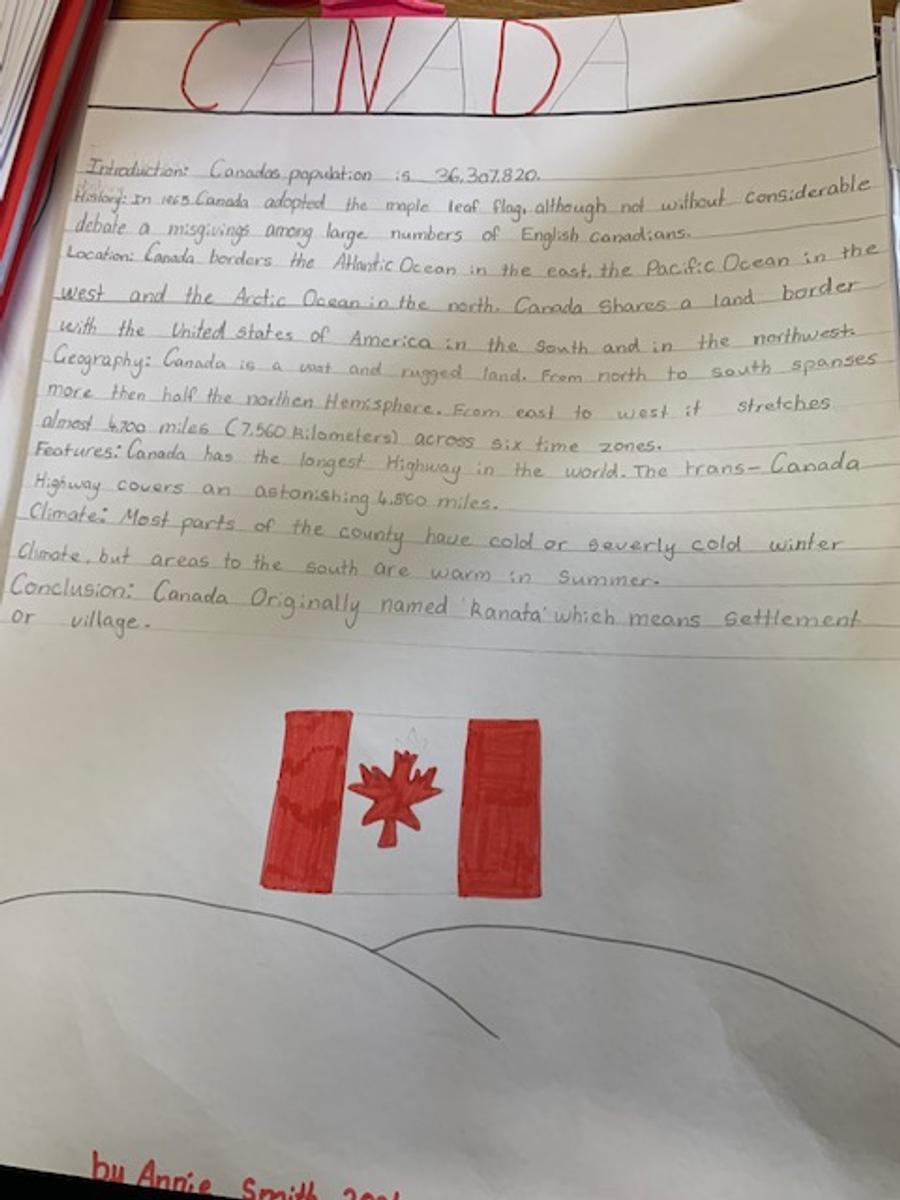 CANADA
Introduction: Canadas population is 36,307,820.
History: In Canada adopted the maple leaf flag, although not without considerable
debate a misgivings among large numbers of English Canadians.
Location: Canada borders the Atlantic Ocean in the east, the Pacific Ocean in the
west and the Arctic Ocean in the north. Canada Shares a land border
with the United states of America in the South and in the northwest.
Geography: Canada is a vast and rugged land. From north to south spanses
more then half the northen Hemisphere. From east to west it stretches
almost 4,700 miles (7,560 Kilometers) across six time zones.
Features: Canada has the longest Highway in the world. The trans-Canada
Highway covers an astonishing 4,860 miles.
Climate: Most parts of the county have cold or severly cold winter
Climate, but areas to the south are warm in Summer.
Conclusion: Canada Originally named 'Kanata' which means Settlement
or village.
by Annie Smith